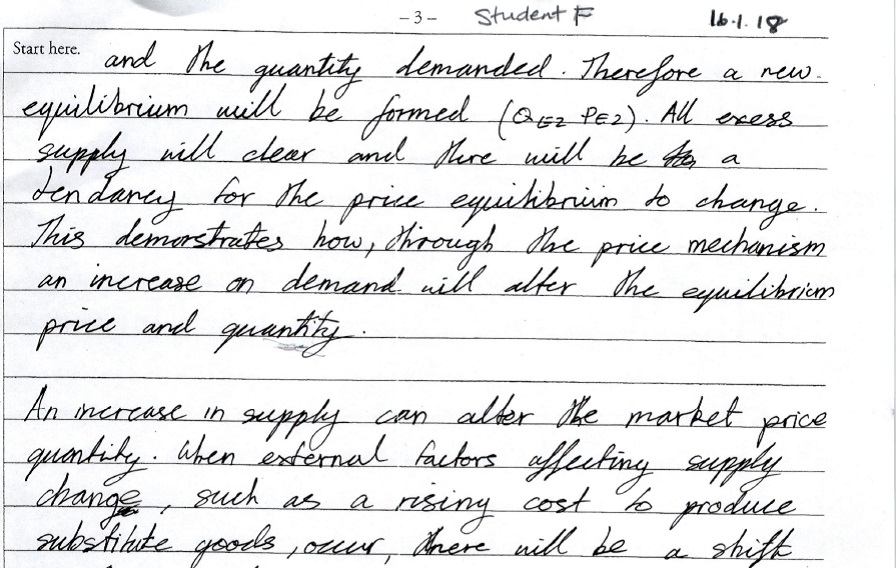 -3- Student F 16.1.18
Start here.
and the quantity demanded. Therefore a new
equilibrium will be formed (QE2 PE2). All exess
supply will clear and there will be a
tendancy for the price equilibrium to change.
This demonstrates how, through the price mechanism
an increase on demand will alter the equilibrium
price and quantity.
An increase in supply can alter the market price
quantity. When external factors affecting supply
change, such as a rising cost to produce
substitute goods, occur, there will be a shift